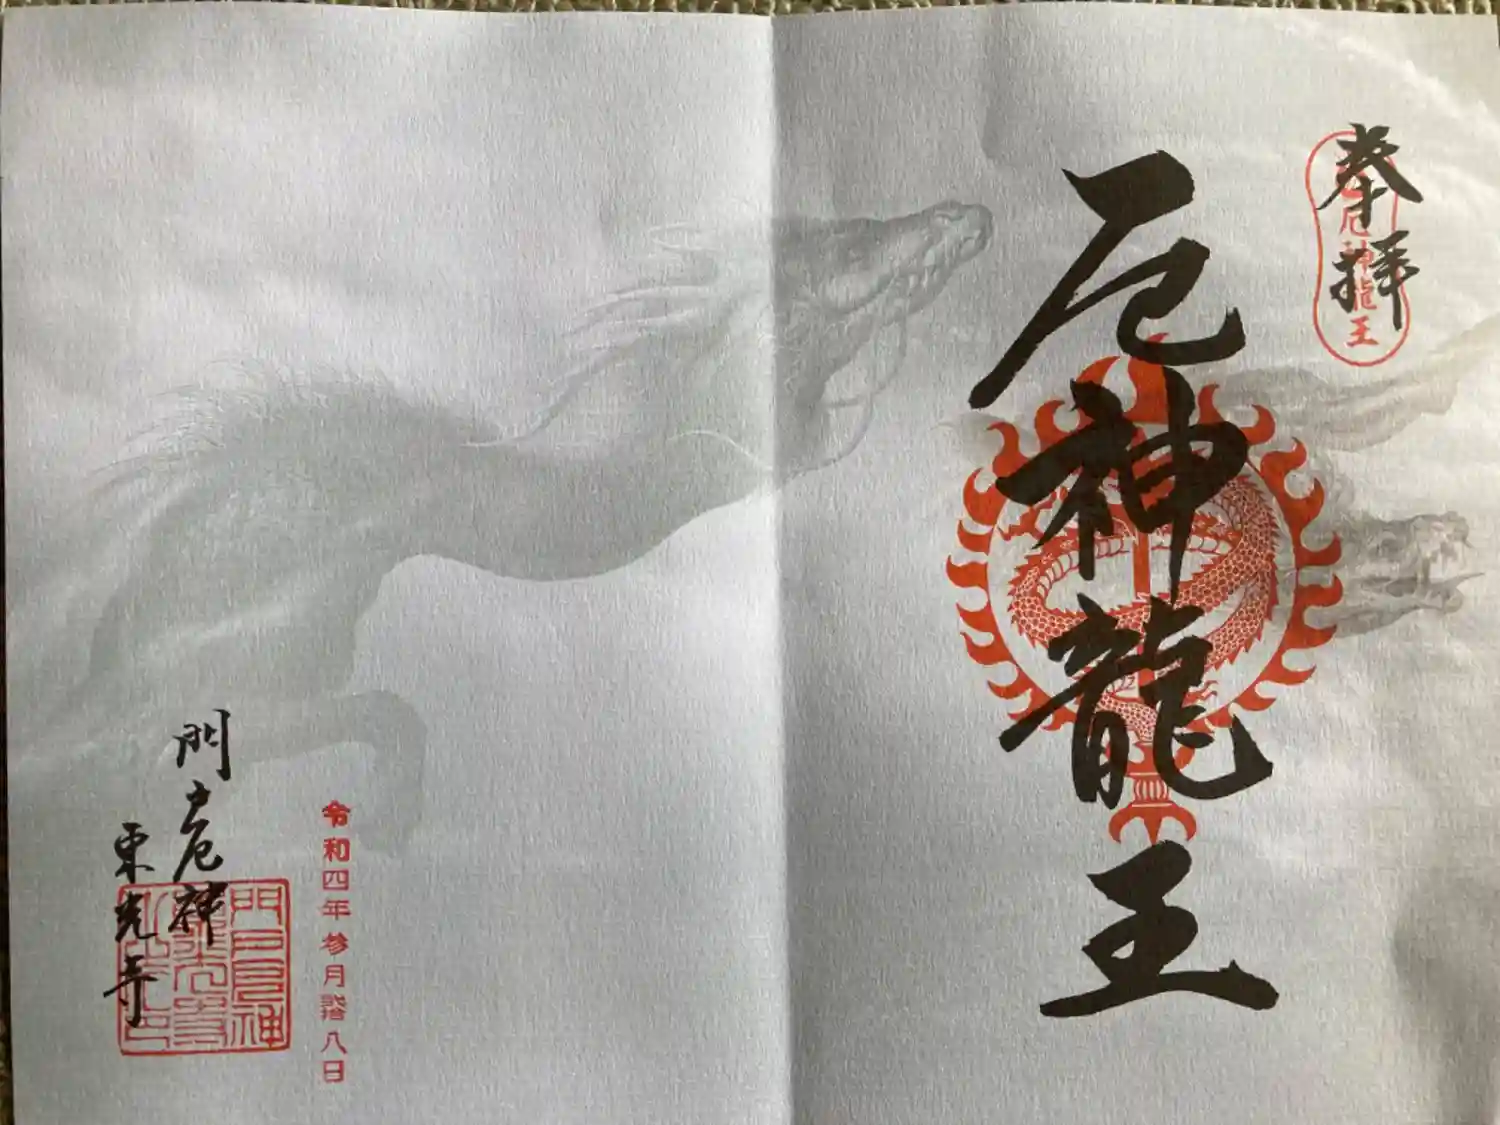 奉拝
厄神龍王
厄神龍王
令和四年参月弐拾八日
門戸厄神
東光寺
門戸厄神